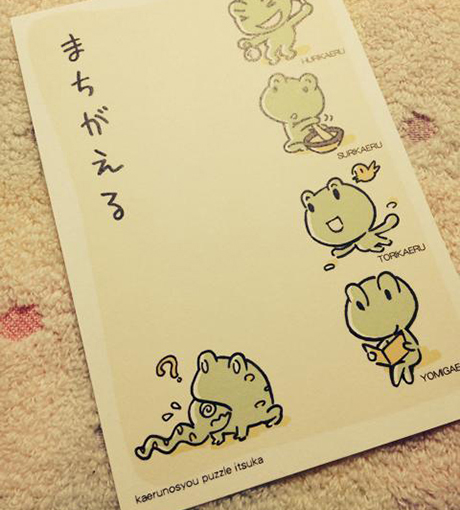 まちがえる
HURIKAERU
SURIKAERU
TORIKAERU
YOMIGAE
?
kaerunosyou puzzle itsuka